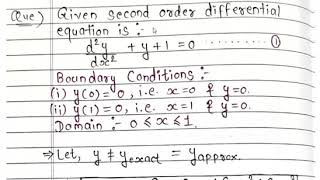 (Que) Given second order differential
equation is :-
d²y/dx² + y + 1 = 0 ............ ①
Boundary Conditions :-
(i) y(0) = 0, i.e. x=0 & y=0.
(ii) y(1) = 0, i.e. x=1 & y=0.
Domain :- 0 ≤ x ≤ 1.
⇒ Let, y ≠ y exact = y approx.